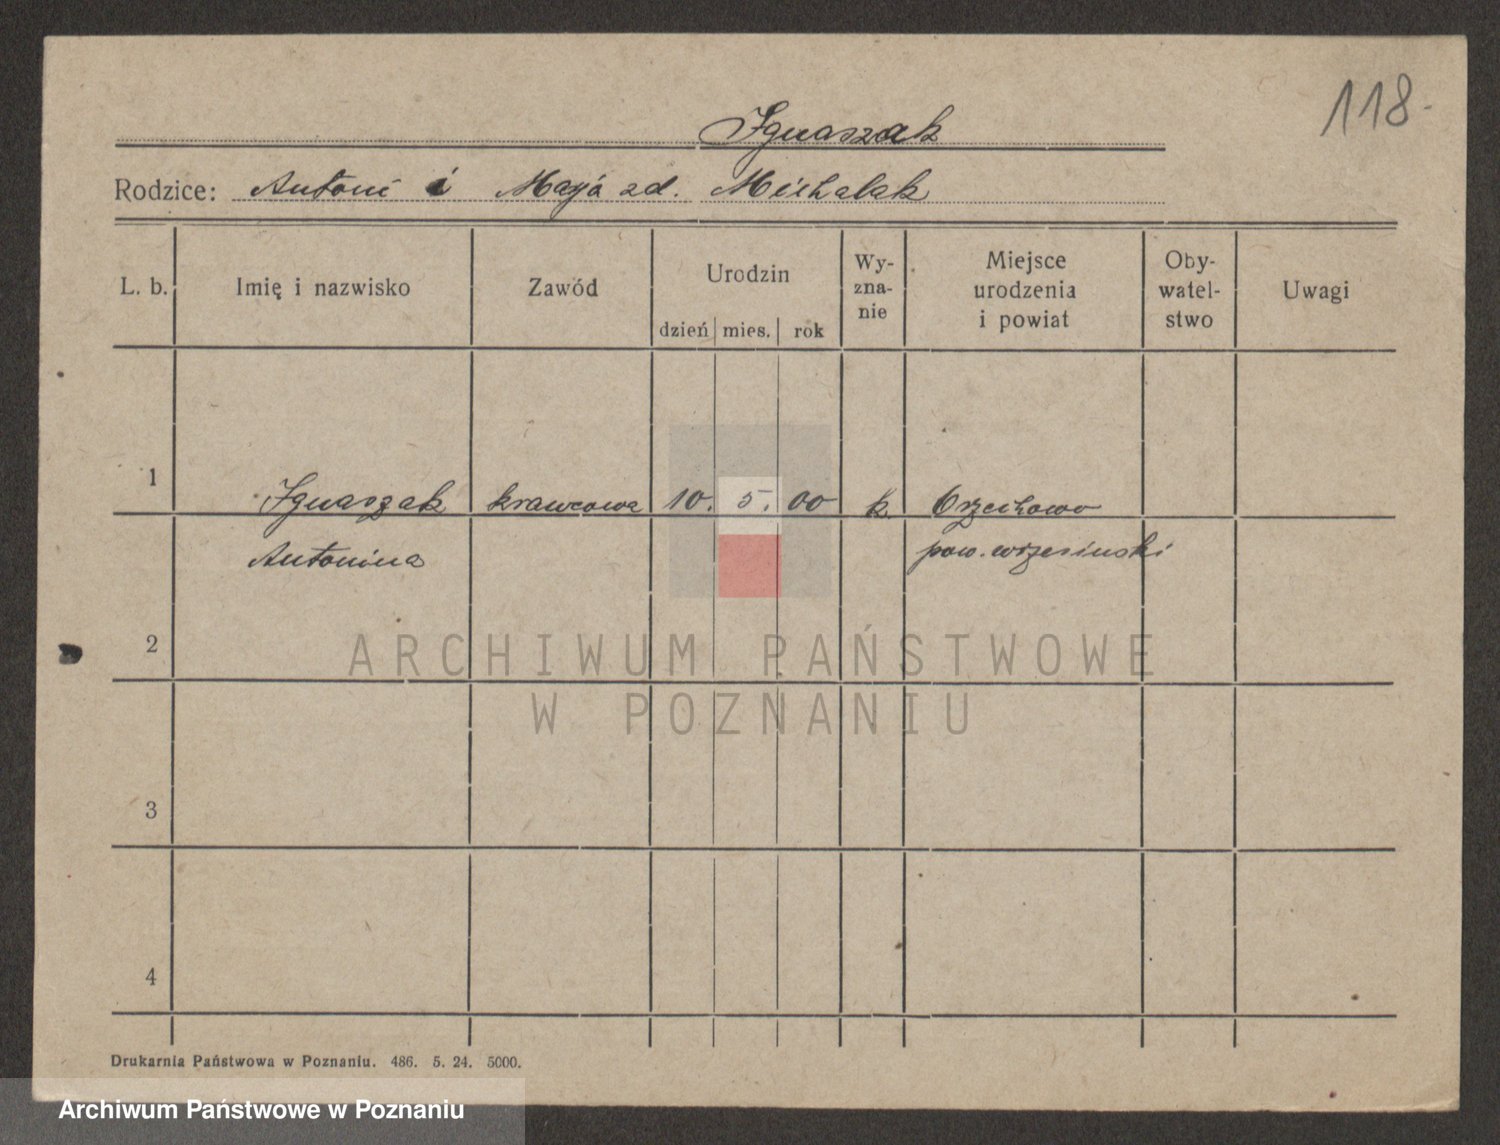 118.
Ignaszak
Rodzice: Antoni i Maryja zd. Michalak
L. b. Imię i nazwisko Zawód Urodzin dzień mies. rok Wy-zna-nie Miejsce urodzenia i powiat Oby-watel-stwo Uwagi
1 Ignaszak krawcowa 10. 5. 00 k. Orzechowo
Antonina pow. wrzesiński
2
ARCHIWUM PAŃSTWOWE
W POZNANIU
3
4
Drukarnia Państwowa w Poznaniu. 486. 5. 24. 5000.
Archiwum Państwowe w Poznaniu